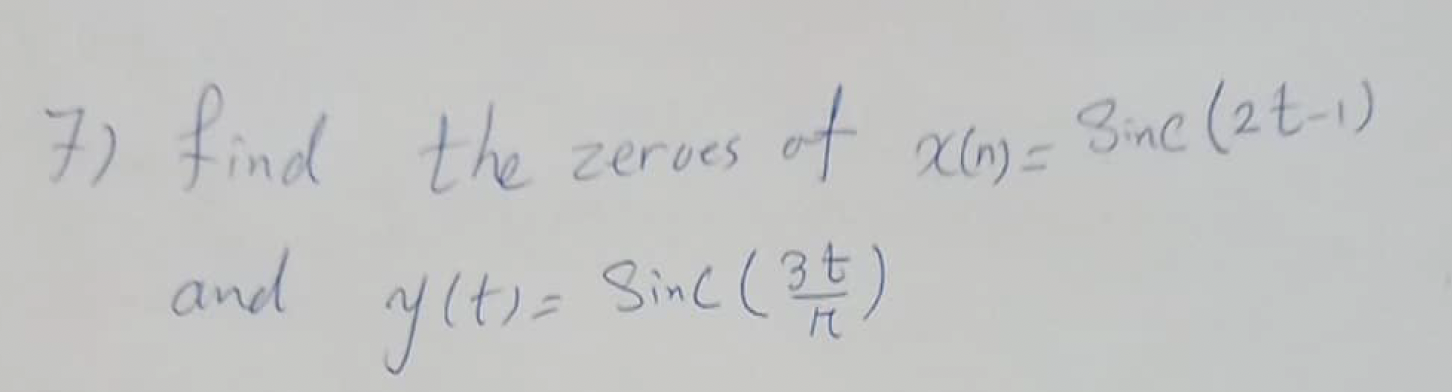 7) find the zeroes of x(n) = Sinc(2t-1)
and y(t) = Sinc(3t/π)